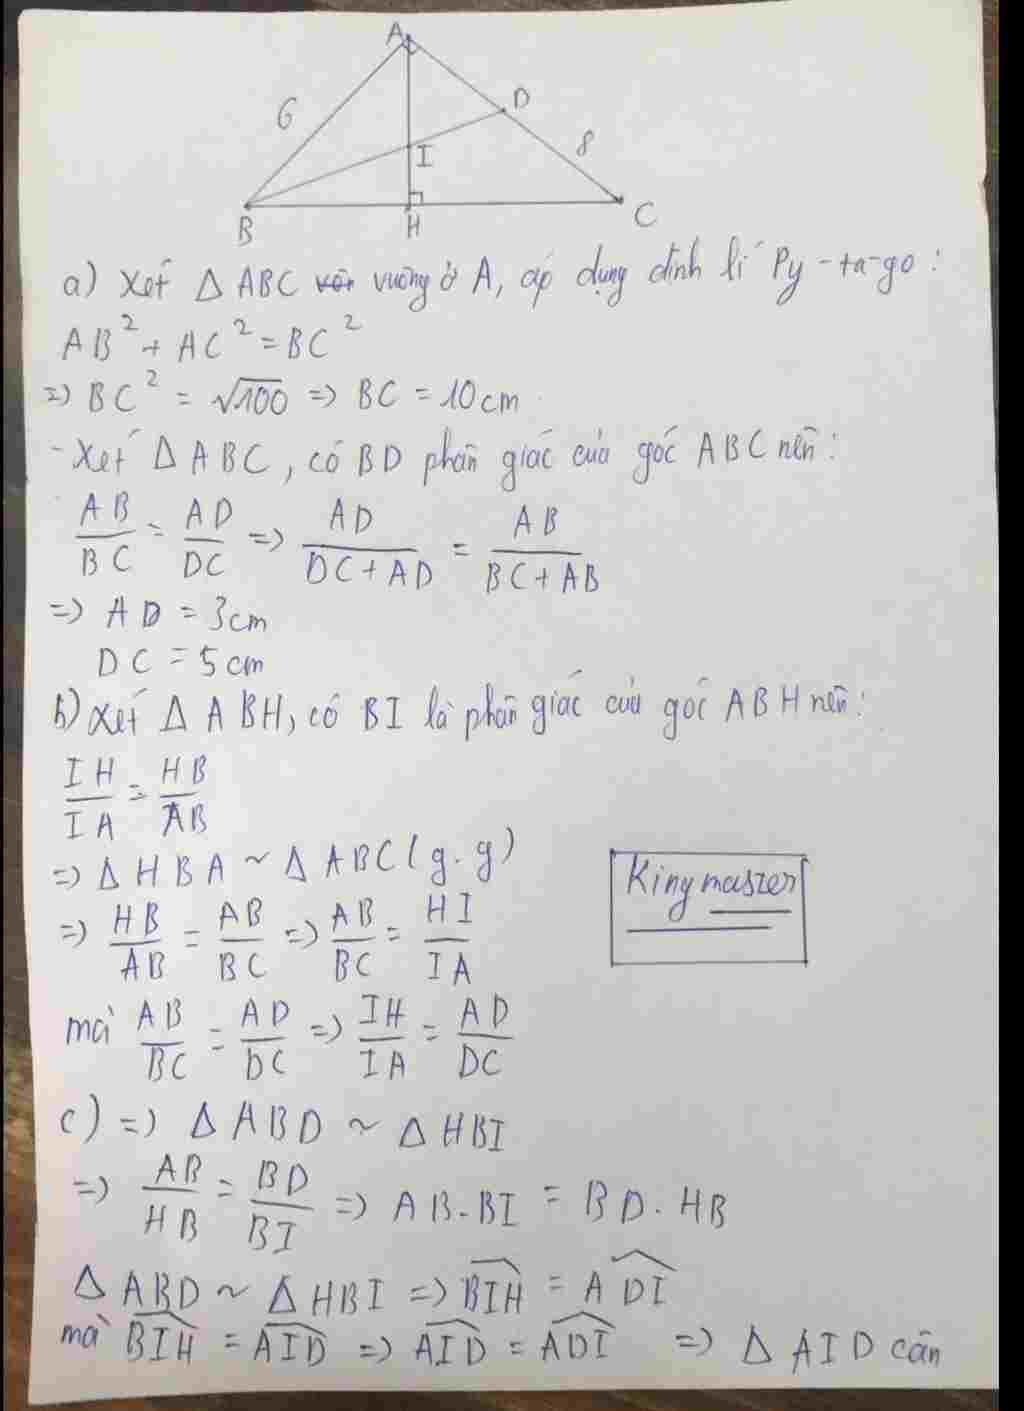 A
6
D
8
I
B
H
C
a) Xét Δ ABC vuông ở A, áp dụng định lí Py-ta-go:
AB² + AC² = BC²
=> BC² = √100 => BC = 10cm
- Xét Δ ABC, có BD phân giác của góc ABC nên:
AB/BC = AD/DC => AD/(DC + AD) = AB/(BC + AB)
=> AD = 3cm
DC = 5cm
b) Xét Δ ABH, có BI là phân giác của góc ABH nên:
IH/IA = HB/AB
=> Δ HBA ~ Δ ABC (g.g)
=> HB/AB = AB/BC => AB/BC = HI/IA
King master
mà AB/BC = AD/DC => IH/IA = AD/DC
c) => Δ ABD ~ Δ HBI
=> AB/HB = BD/BI => AB.BI = BD.HB
Δ ABD ~ Δ HBI => BIH = ADI
mà BIH = AID => AID = ADI => Δ AID cân